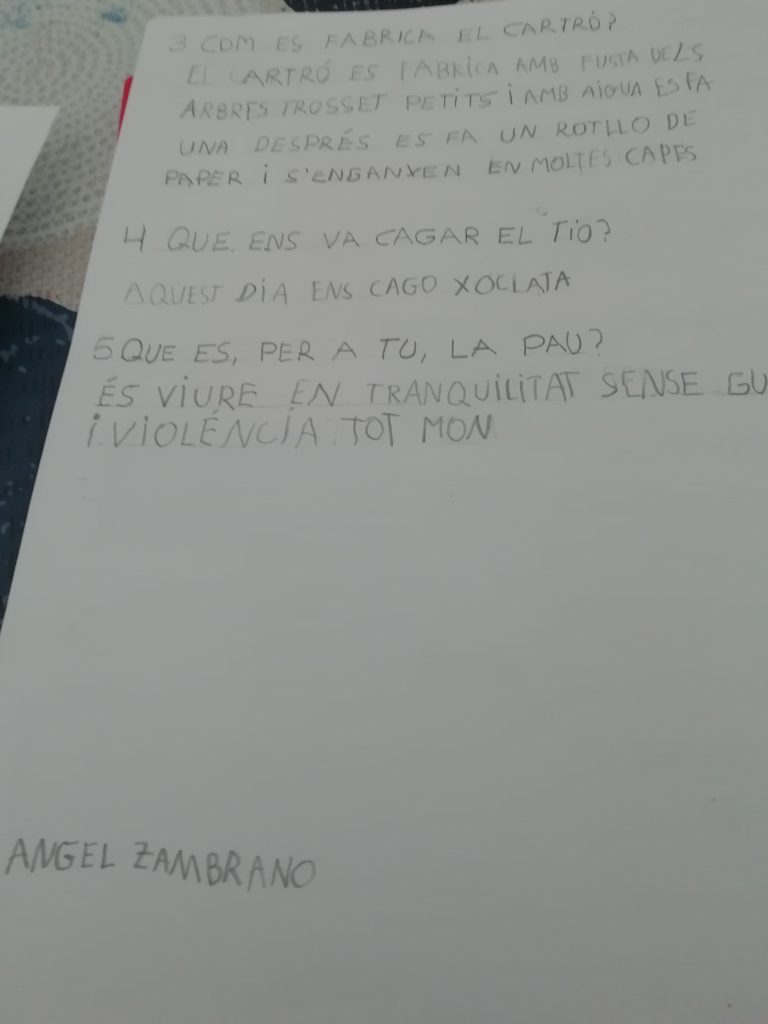 3 COM ES FABRICA EL CARTRÓ?
EL CARTRÓ ES FABRICA AMB FUSTA DELS
ARBRES TROSSET PETITS I AMB AIGUA ES FA
UNA DESPRÉS ES FA UN ROTLLO DE
PAPER I S'ENGANXEN EN MOLTES CAPES
4 QUE ENS VA CAGAR EL TIO?
AQUEST DIA ENS CAGO XOCLATA
5 QUE ES, PER A TU, LA PAU?
ÉS VIURE EN TRANQUILITAT SENSE GU
I VIOLÉNCIA TOT MON
ANGEL ZAMBRANO